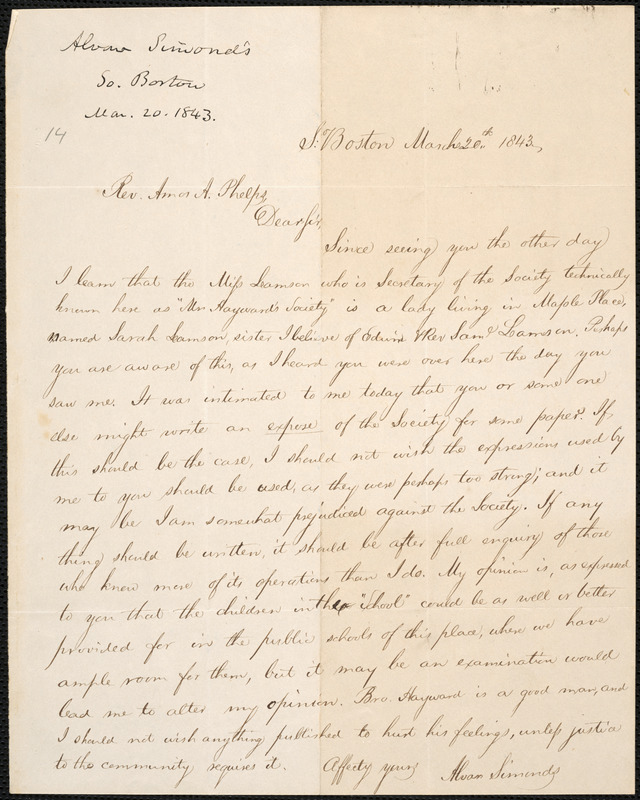 Alvan Simond's
So. Boston
Mar. 20. 1843.
14
So. Boston March 20th 1843,
Rev. Amos A. Phelps,
Dear Sir,
Since seeing you the other day
I learn that the Miss Leamson who is Secretary of the Society technically
known here as "Mr. Hayward's Society" is a lady living in Maple Place,
named Sarah Leamson, sister I believe of Edwin & Rev Saml. Leamson. Perhaps
you are aware of this, as I heard you were over here the day you
saw me. It was intimated to me today that you or some one
else might write an expose of the Society for some paper. If
this should be the case, I should not wish the expressions used by
me to you should be used, as they were perhaps too strong; and it
may be I am somewhat prejudiced against the Society. If any
thing should be written, it should be after full enquiry of those
who know more of its operations than I do. My opinion is, as expressed
to you that the children in the "School" could be as well or better
provided for in the public schools of this place, where we have
ample room for them, but it may be an examination would
lead me to alter my opinion. Bro. Hayward is a good man, and
I should not wish anything published to hurt his feelings, unless justice
to the community requires it. Affecty yours Alvan Simonds